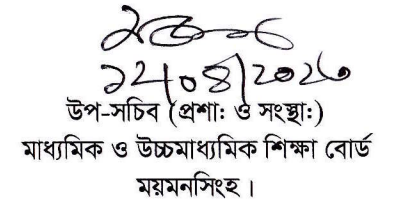 উপ-সচিব (প্রশা: ও সংস্থা:)
মাধ্যমিক ও উচ্চমাধ্যমিক শিক্ষা বোর্ড
ময়মনসিংহ।